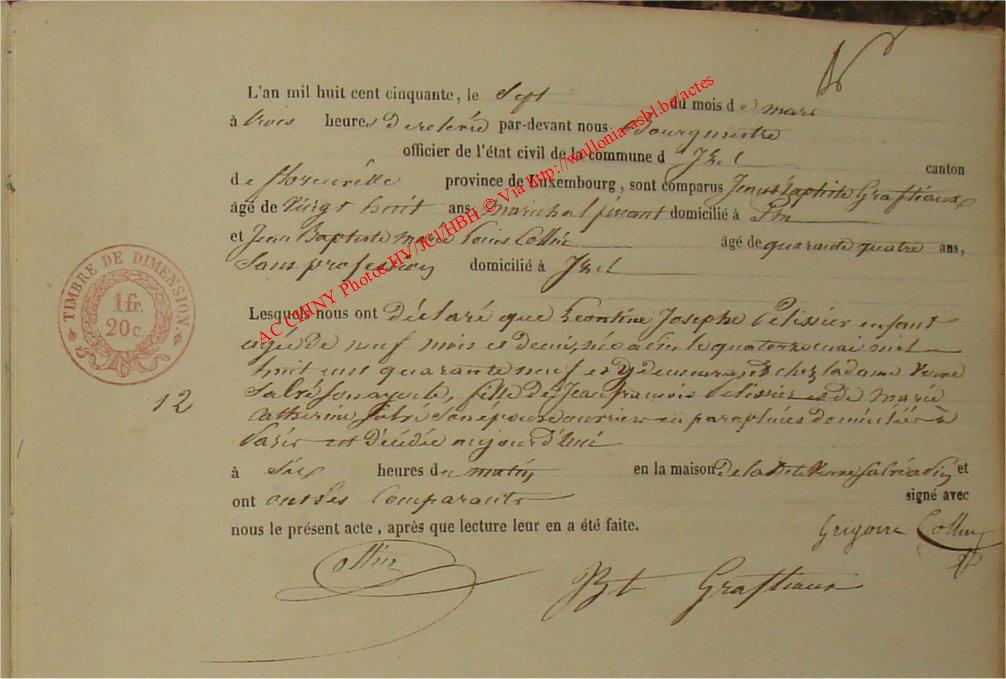 L'an mil huit cent cinquante, le Sept du mois de mars
à trois heures de relevée par-devant nous Bourgmestre
officier de l'état civil de la commune d Izel canton
de florenville province de Luxembourg, sont comparus Jean Baptiste Graftiaux
âgé de Vingt huit ans Marechal ferrant domicilié à Pin
et Jean Baptiste Marie Louis Collin âgé de quarante quatre ans,
Sans profession domicilié à Izel
Lesquels nous ont déclaré que Leontine Josephe Pelissier enfant
agée de neuf mois et demis, née à Pin le quatorze mai mil
huit cent quarante neuf et y demeurant chez la dame Veuve
Salré sonayeule, fille de Jean francois Pelissier et de Marie
Catherine Salré son epouse ouvriers en parapluies domiciliés à
Paris est Décédée aujourd'hui
à Six heures du matin en la maison de la dite Veuve Salré à Pin et
ont on les comparants signé avec
nous le présent acte, après que lecture leur en a été faite.
Grégoire Collin
Collin
JBt Graftiaux
12
TIMBRE DE DIMENSION.
1fr.
20c.
AC CHINY Photos HV/JCl/HBH © Via http://wallonia-asbl.be/actes